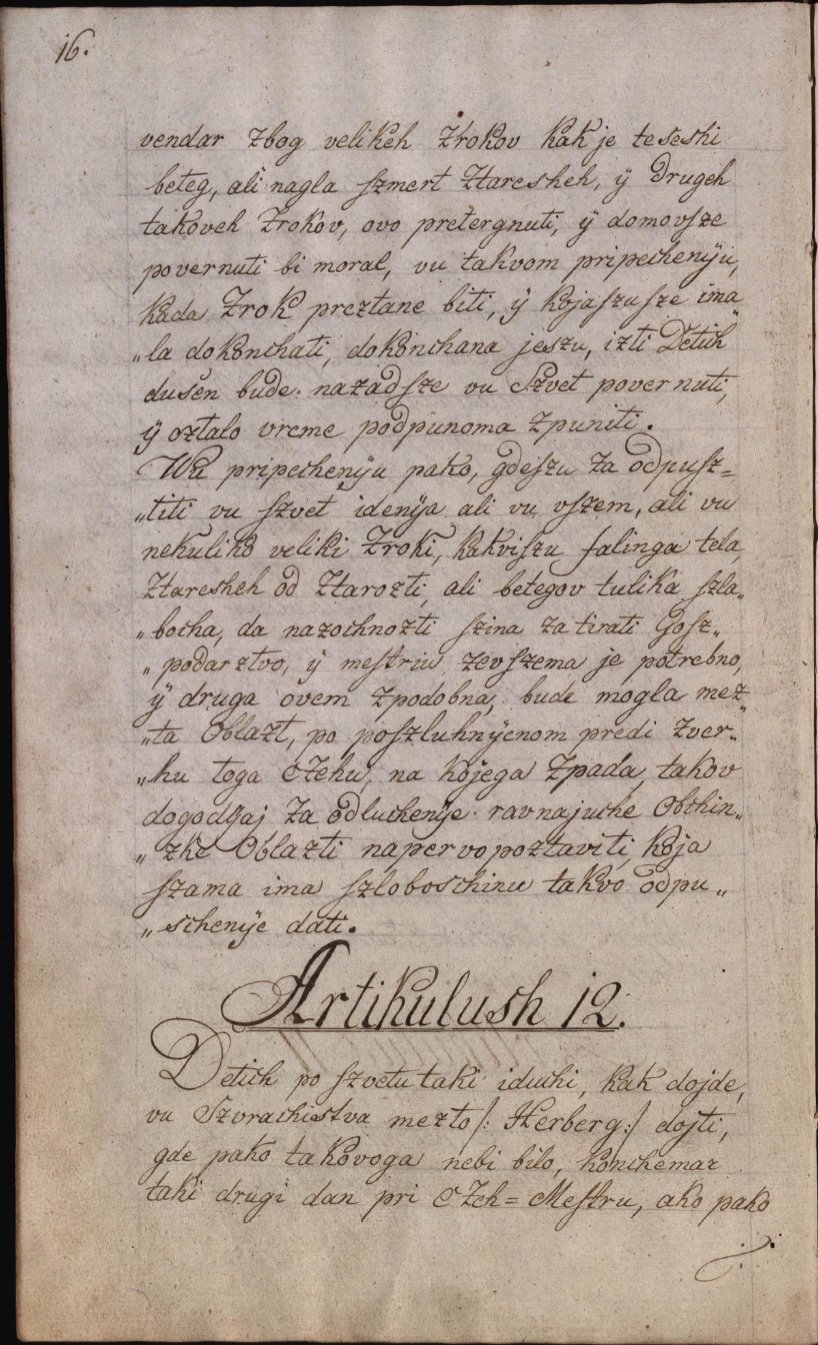 16.
vendar zbog velikeh Zrokov kak je teseshi
beteg, ali nagla szmert Ztaresheh, ÿ drugeh
takoveh Zrokov, ovo pretergnuti, ÿ domovsze
povernuti bi moral, vu takvom pripechenÿu,
kada Zrok preztane biti, ÿ kojaszusze ima„
„la dokonchati, dokonchana jeszu, izti Detich
dusen bude nazadsze vu Szvet povernuti,
ÿ oztalo vreme podpunoma zpuniti.
Wu pripechenÿu pako, gdeszu za odpusz=
„titi vu szvet idenÿa ali vu vszem, ali vu
nekuliko veliki Zroki, kakviszu falinga tela,
Ztaresheh od Ztarozti, ali betegov tulika szla„
„bocha, da nazochnozti szina za tirati Gosz„
„podarztvo, ÿ mestriu zevszema je potrebno,
ÿ druga ovem zpodobna, bude mogla mez„
„ta Oblazt, po poszluhnÿenom predi zver„
„hu toga Czehu, na kojega zpada, takov
dogodÿaj za odluchenÿe ravnajuche Obchin„
„zke Oblazti napervo poztaviti, koja
szama ima szloboschinu takvo odpu„
„schenÿe dati.
Artikulush 12.
Detich po szvetu taki iduchi, kak dojde,
vu Szvrachistva mezto /: Herberg :/ dojti,
gde pako takovoga nebi bilo, konchemar
taki drugi dan pri Czeh=Mestru, ako pako